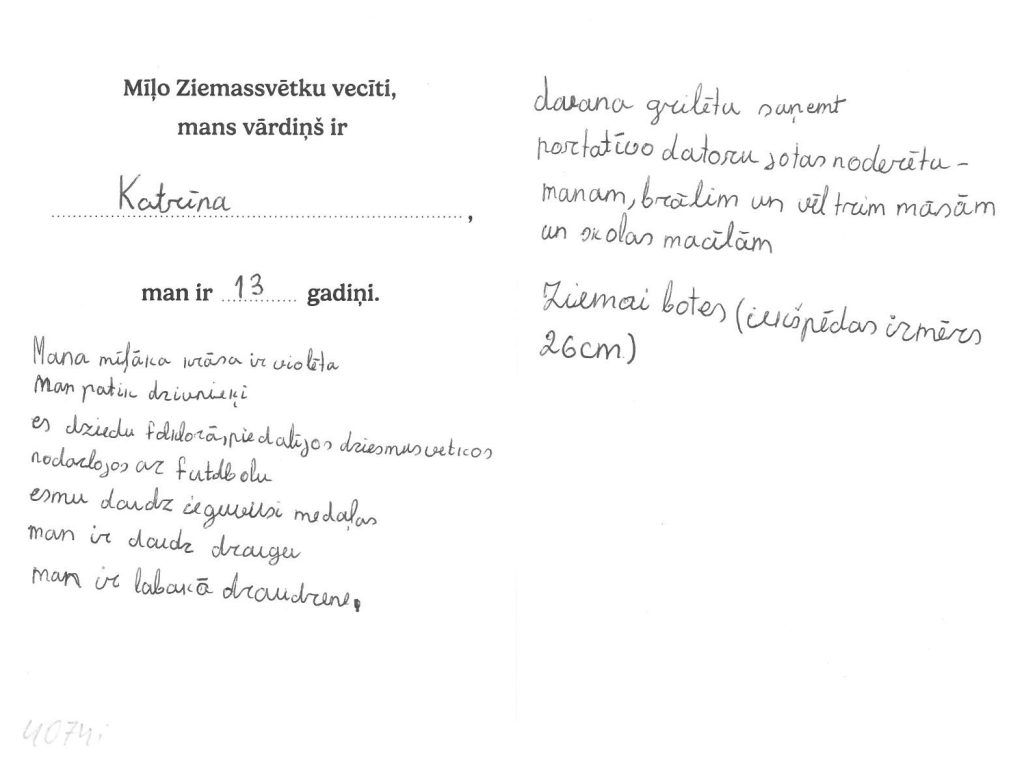 Mīļo Ziemassvētku vecīti,
mans vārdiņš ir
Katrīna,
man ir 13 gadiņi.
Mana mīļāka krāsa ir violēta
Man patik dzivnieķi
es dziedu folklorā, piedalījos dziesmusvetkos
nodarbojos ar futdbolu
esmu daudz ieguvusi medaļas
man ir daudz draugu
man ir labakā draudzene,
davana gribētu saņemt
portatīvo datoru jotas noderētu -
manam, brālim un vēl trim māsām
un skolas macīlām
Ziemai botes (iekšpēdas izmērs
26cm)
4074i